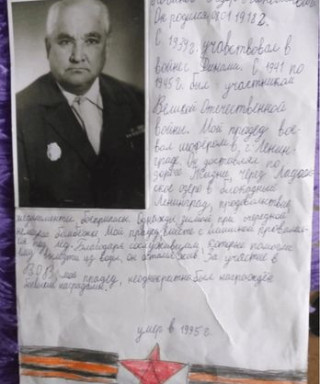 Он родился
в 1939г. учавствовал в
войне с
в 1941 по
1945г. был участником
Великой Отечественной
войне. Мой прадед вое-
вал шофером в г. Ленин-
граде. Он доставлял по
дороге Жизни, через Ладож-
ское озеро в блокадный
Ленинград, продовольствие
однажды зимой при очередной
Мой прадед вместе с машиной провалил-
ся под лёд. Благодаря сослуживцам, которые помогли
ему вылезти из воды, он остался жив. За участие в
В.О.В. мой прадед, неоднократно был награждён
умер в 1995г.